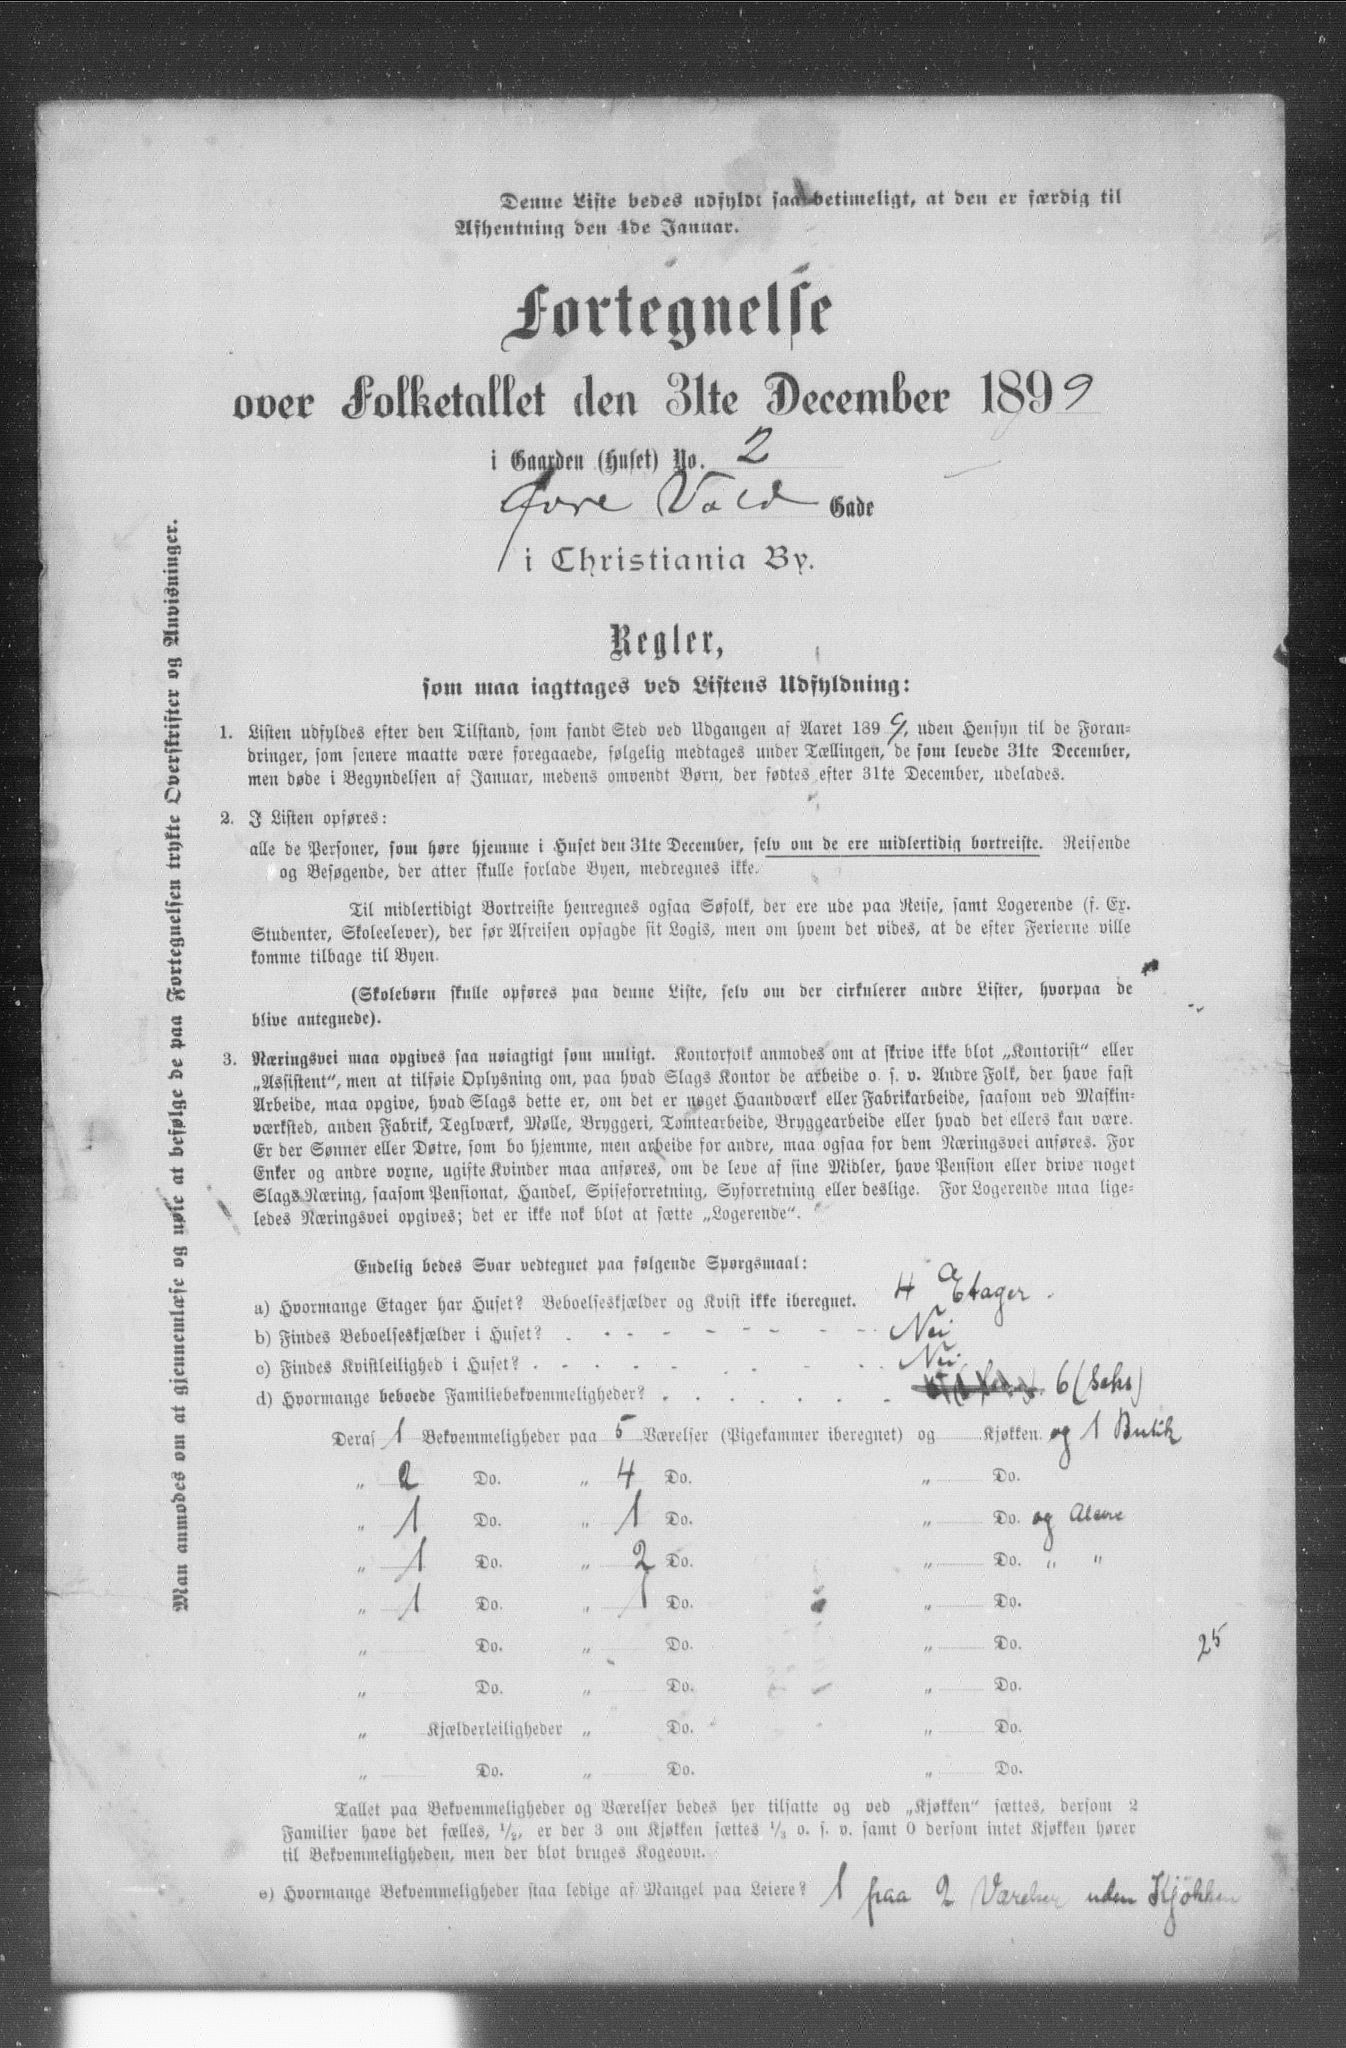 Denne Liste bedes udfyldt saa betimeligt, at den er færdig til
Afhentning den 4de Januar.
Fortegnelse
over Folketallet den 31te December 1899
i Gaarden (Huset) No. 2
Øvre Vold Gade
i Christiania By.
Regler,
som maa iagttages ved Listens Udfyldning:
1. Listen udfyldes efter den Tilstand, som fandt Sted ved Udgangen af Aaret 1899, uden Hensyn til de Foran-
dringer, som senere maatte være foregaaede, følgelig medtages under Tællingen, de som levede 31te December,
men døde i Begyndelsen af Januar, medens omvendt Børn, der fødtes efter 31te December, udelades.
2. I Listen opføres:
alle de Personer, som høre hjemme i Huset den 31te December, selv om de ere midlertidig bortreiste. Reisende
og Besøgende, der atter skulle forlade Byen, medregnes ikke.
Til midlertidigt Bortreiste henregnes ogsaa Søfolk, der ere ude paa Reise, samt Logerende (f. Ex.
Studenter, Skoleelever), der før Afreisen opsagde sit Logis, men om hvem det vides, at de efter Ferierne ville
komme tilbage til Byen.
(Skolebørn skulle opføres paa denne Liste, selv om der cirkulerer andre Lister, hvorpaa de
blive antegnede).
3. Næringsvei maa opgives saa nøiagtigt som muligt. Kontorfolk anmodes om at skrive ikke blot „Kontorist“ eller
„Assistent“, men at tilføie Oplysning om, paa hvad Slags Kontor de arbeide o. s. v. Andre Folk, der have fast
Arbeide, maa opgive, hvad Slags dette er, om det er noget Haandværk eller Fabrikarbeide, saasom ved Maskin-
værksted, anden Fabrik, Teglværk, Mølle, Bryggeri, Tomtearbeide, Bryggearbeide eller hvad det ellers kan være.
Er der Sønner eller Døtre, som bo hjemme, men arbeide for andre, maa ogsaa for dem Næringsvei anføres. For
Enker og andre voxne, ugifte Kvinder maa anføres, om de leve af sine Midler, have Pension eller drive noget
Slags Næring, saasom Pensionat, Handel, Spiseforretning, Syforretning eller deslige. For Logerende maa lige-
ledes Næringsvei opgives; det er ikke nok blot at sætte „Logerende“.
Endelig bedes Svar vedtegnet paa følgende Spørgsmaal:
a) Hvormange Etager har Huset? Beboelseskjælder og Kvist ikke iberegnet. 4 Etager.
b) Findes Beboelseskjælder i Huset? Nei
c) Findes Kvistleilighed i Huset? Nei.
d) Hvormange beboede Familiebekvemmeligheder? 6 (Seks)
Deraf 1 Bekvemmeligheder paa 5 Værelser (Pigekammer iberegnet) og Kjøkken. og 1 Butik
„ 2 Do. „ 4 Do. „ Do.
„ 1 Do. „ 1 Do. „ Do. og
„ 1 Do. „ 2 Do. „ Do. „ „
„ 1 Do. „ 1 Do. „ Do.
„ Do. „ Do. „ Do. 25
„ Do. „ Do. „ Do.
„ Kjælderleiligheder „ Do. „ Do.
„ Do. „ Do. „ Do.
Tallet paa Bekvemmeligheder og Værelser bedes her tilsatte og ved „Kjøkken“ sættes, dersom 2
Familier have det fælles, 1/2, er der 3 om Kjøkken sættes 1/3 o. s. v. samt 0 dersom intet Kjøkken hører
til Bekvemmeligheden, men der blot bruges Kogeovn.
e) Hvormange Bekvemmeligheder staa ledige af Mangel paa Leiere? 1 paa 2 Værelser uden Kjökken
Man anmodes om at gjennemlæse og nøie at befølge de paa Fortegnelsen trykte Overskrifter og Anvisninger.